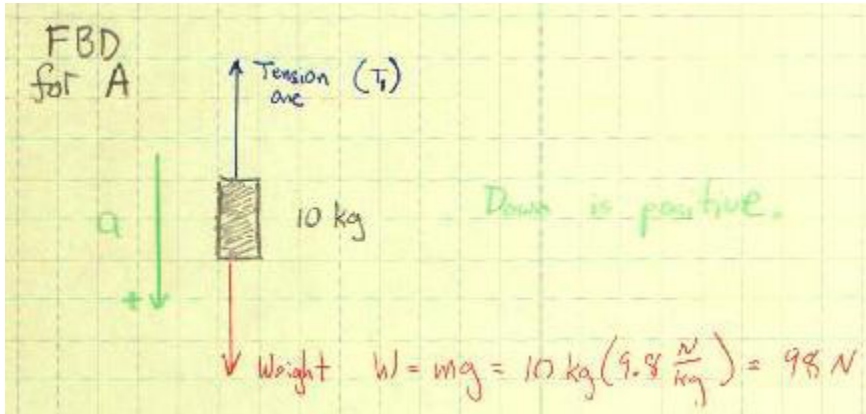 FBD
for A
Tension (T₁)
one
10 kg
Down is positive.
a
+
Weight W = mg = 10 kg (9.8 N/kg) = 98 N